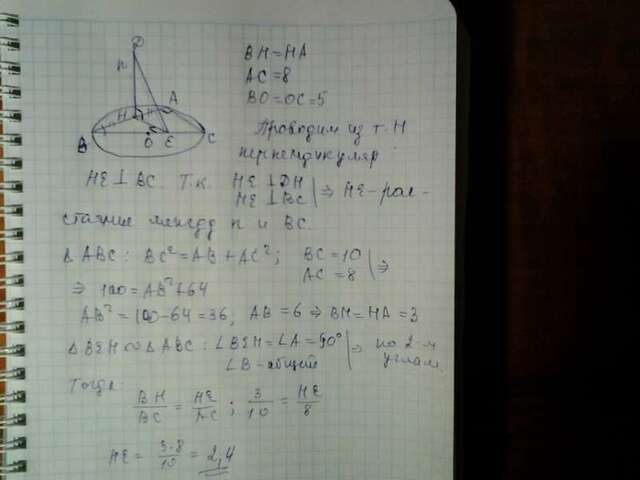 D
n
H
A
B
O
E
C
BH = HA
AC = 8
BO = OC = 5
Проводим из т. H
перпендикуляр
HE ⊥ BC. Т.к. HE ⊥ DH
HE ⊥ BC | ⇒ HE - рас-
стояние между n и BC.
Δ ABC : BC² = AB + AC² ; BC = 10
AC = 8 | ⇒
⇒ 100 = AB² + 64
AB² = 100 - 64 = 36, AB = 6 ⇒ BH = HA = 3
Δ BEH ∾ Δ ABC : ∠BEH = ∠A = 90° | ⇒ по 2-м
∠B - общий углам.
Тогда:
BH/BC = HE/AC ; 3/10 = HE/8
HE = 3·8/10 = 2,4